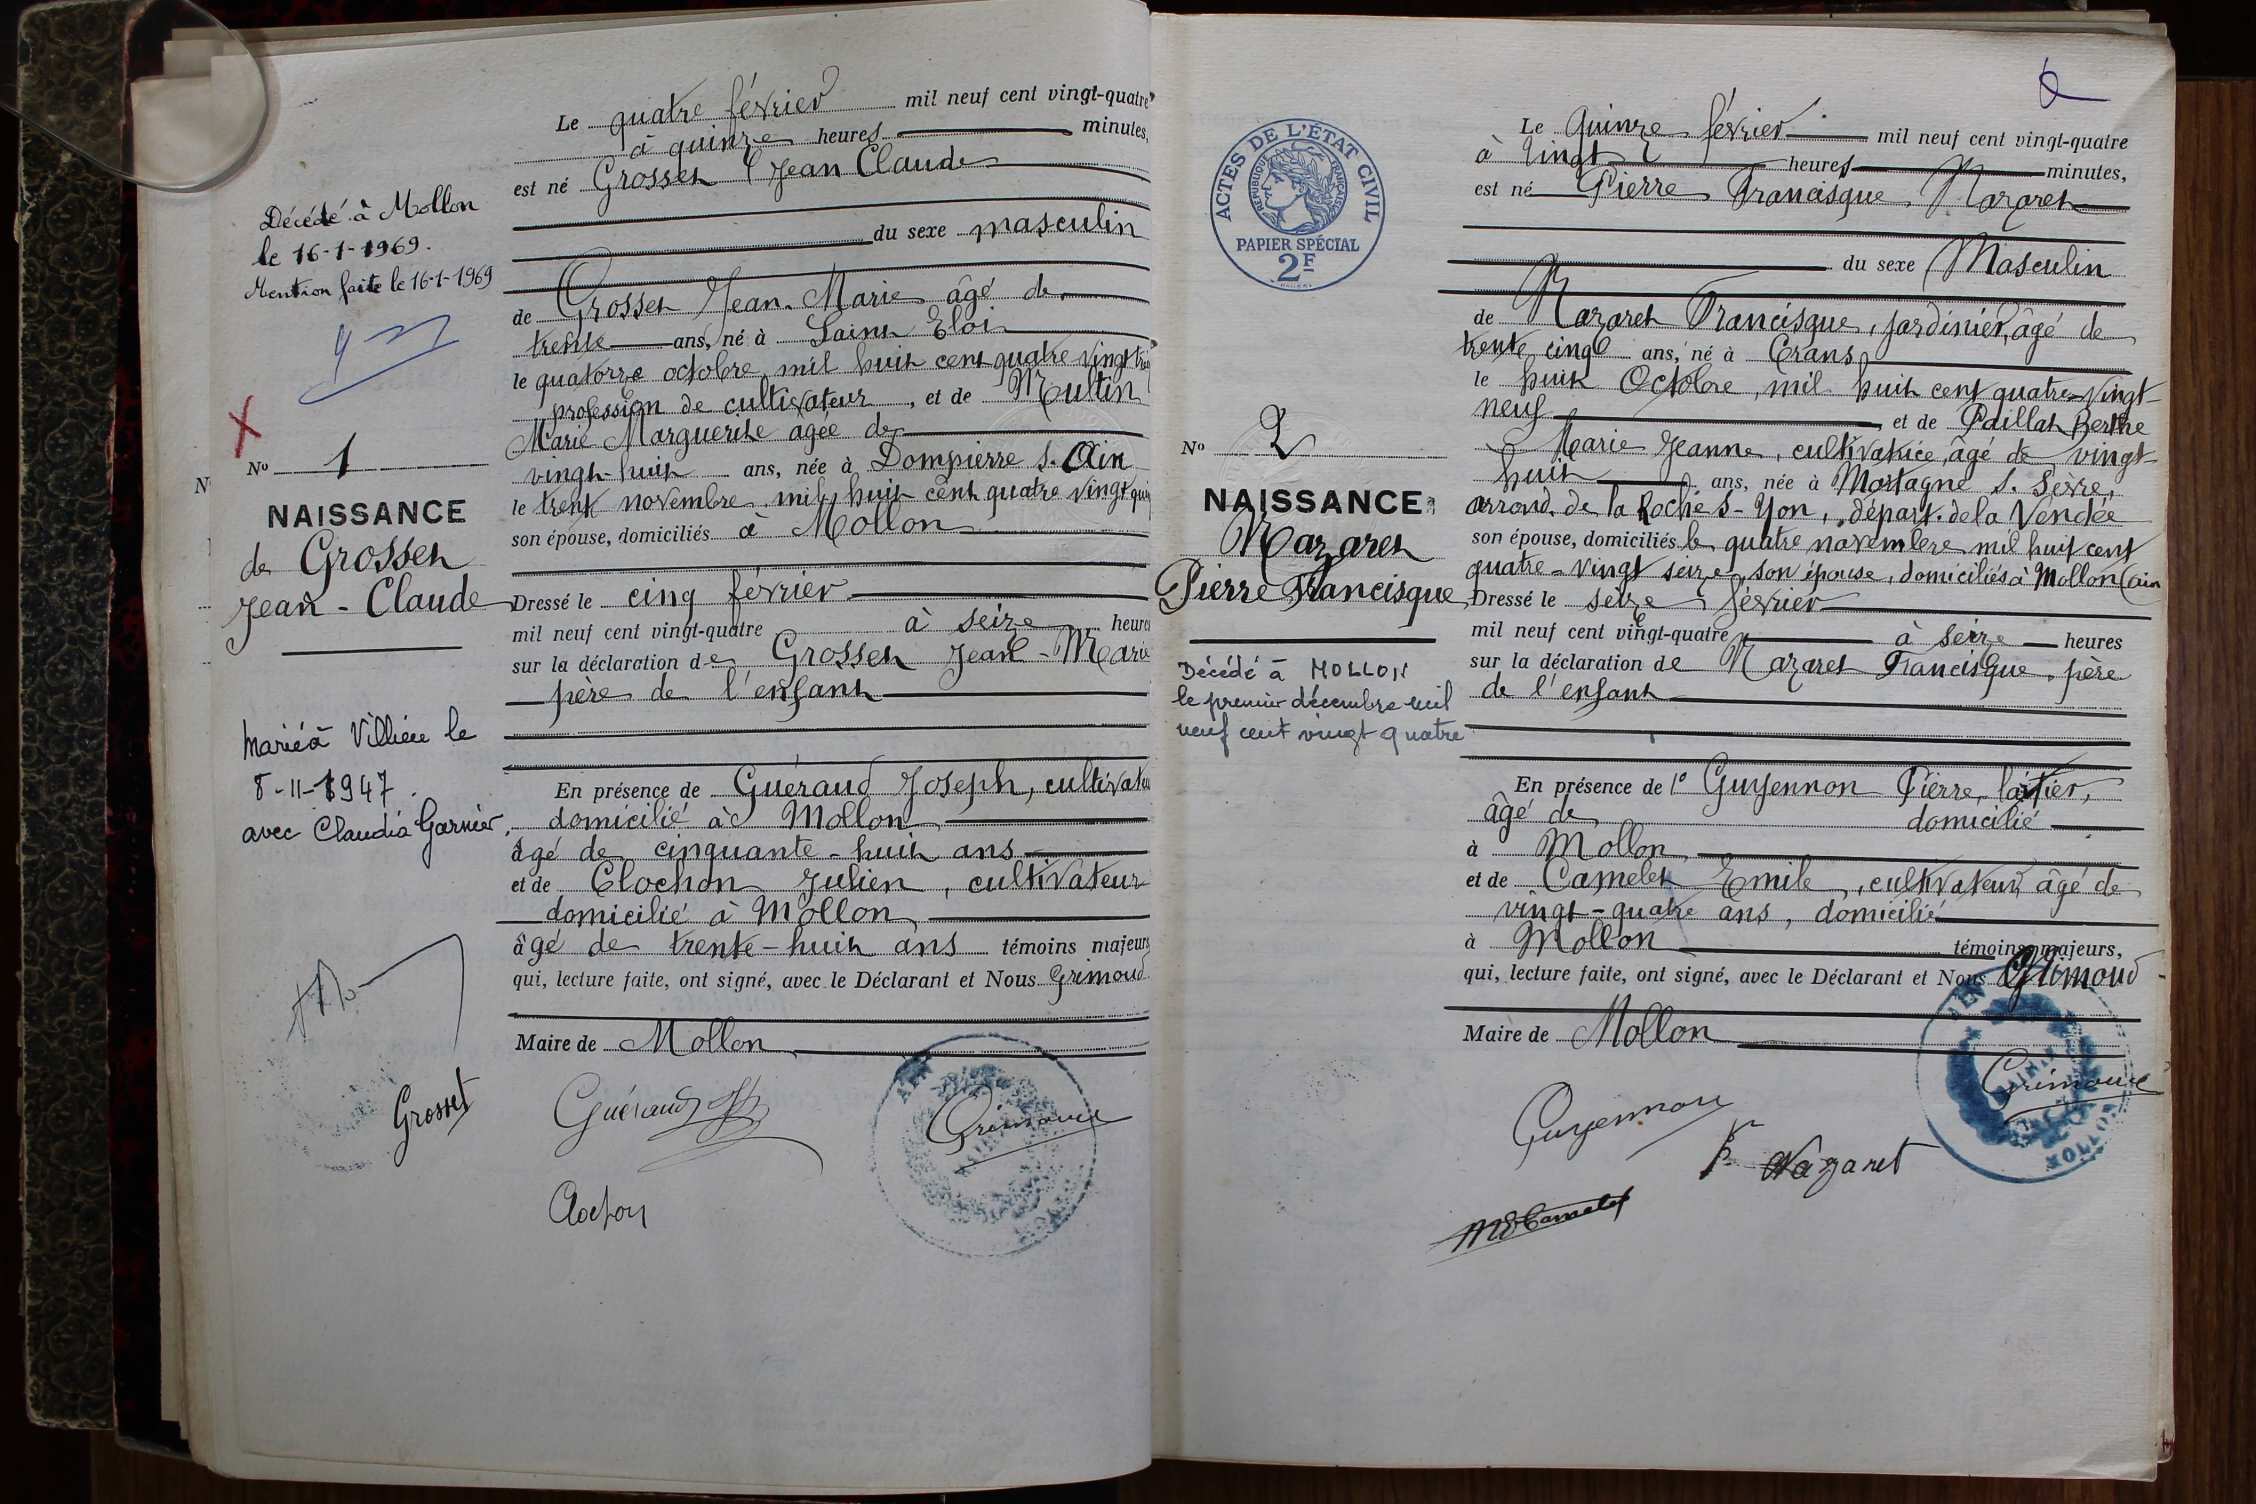 Décédé à Mollon
le 16-1-1969.
Mention faite le 16-1-1969
No 1
NAISSANCE
de Grosset
Jean-Claude
Marié à Villieu le
8-11-1947.
avec Claudia Garnier.
Le quatre février mil neuf cent vingt-quatre
à quinze heures minutes,
est né Grosset Jean Claude
du sexe masculin
de Grosset Jean-Marie âgé de
trente ans, né à Saint Eloi
le quatorze octobre mil huit cent quatre vingt
profession de cultivateur, et de Multin
Marie Marguerite agée de
vingt-huit ans, née à Dompierre s. Ain
le trente novembre mil huit cent quatre vingt
son épouse, domiciliés à Mollon
Dressé le cinq février
mil neuf cent vingt-quatre à seize heures
sur la déclaration de Grosset Jean-Marie
père de l'enfant
En présence de Guéraud Joseph, cultivateu
domicilié à Mollon
âgé de cinquante-huit ans
et de Clochon Julien, cultivateur
domicilié à Mollon
âgé de trente-huit ans témoins majeurs
qui, lecture faite, ont signé, avec le Déclarant et Nous Grimoud
Maire de Mollon
Grosset
Guéraud
Grimoud
Clochon
6
ACTES DE L'ÉTAT CIVIL
RÉPUBLIQUE FRANÇAISE
PAPIER SPÉCIAL
2F
No 2
NAISSANCE
Nazaret
Pierre Francisque
Décédé à MOLLON
le premier décembre mil
neuf cent vingt quatre
Le Quinze février mil neuf cent vingt-quatre
à vingt heures minutes,
est né Pierre Francisque Nazaret
du sexe Masculin
de Nazaret Francisque, jardinier, âgé de
trente cinq ans, né à Crans
le huit Octobre, mil huit cent quatre-vingt-
neuf et de Paillat Berthe
Marie Jeanne, cultivatrice, âgé de vingt-
huit ans, née à Mortagne s. Sevre,
arrond. de la Roche S-Yon, départ. de la Vendée
son épouse, domiciliés le quatre novembre mil huit cent
quatre-vingt seize, son épouse, domiciliés à Mollon (ain
Dressé le seize février
mil neuf cent vingt-quatre à seize heures
sur la déclaration de Nazaret Francisque, père
de l'enfant
En présence de 1º Guyennon Pierre, laitier,
âgé de domicilié
à Mollon
et de Camelet Emile, cultivateur, âgé de
vingt-quatre ans, domicilié
à Mollon témoins majeurs,
qui, lecture faite, ont signé, avec le Déclarant et Nous Grimoud
Maire de Mollon
Grimoud
Guyennon
Nazaret
Camelet
MOLLON